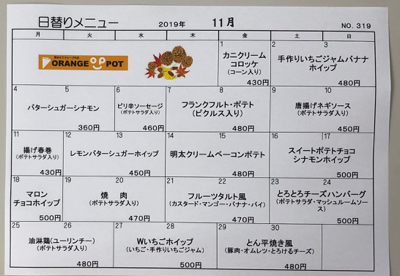 日替りメニュー 2019年 11月 NO. 319
月 火 水 木 金 土 日
ORANGE POT
1 カニクリーム
コロッケ
(コーン入り)
430円
2 3 手作りいちごジャムバナナ
ホイップ
480円
4 バターシュガーシナモン
360円
6 ピリ辛ソーセージ
(ポテトサラダ入り)
460円
7 8 フランクフルト・ポテト
(ピクルス入り)
480円
9 10 唐揚げネギソース
(ポテトサラダ入り)
450円
11 揚げ春巻
(ポテトサラダ入り)
430円
12 13 レモンバターシュガーホイップ
450円
14 15 明太クリームベーコンポテト
480円
16 17 スイートポテトチョコ
シナモンホイップ
500円
18 マロン
チョコホイップ
500円
19 20 焼 肉
(ポテトサラダ入り)
470円
21 22 フルーツタルト風
(カスタード・マンゴー・バナナ・パイ)
500円
23 24 とろとろチーズハンバーグ
(ポテトサラダ・マッシュルームソース)
500円
25 26 油淋鶏(ユーリンチー)
(ポテトサラダ入り)
480円
27 28 Wいちごホイップ
(いちご・手作りいちごジャム)
500円
29 30 とん平焼き風
(豚肉・オムレツ・とろけるチーズ)
480円